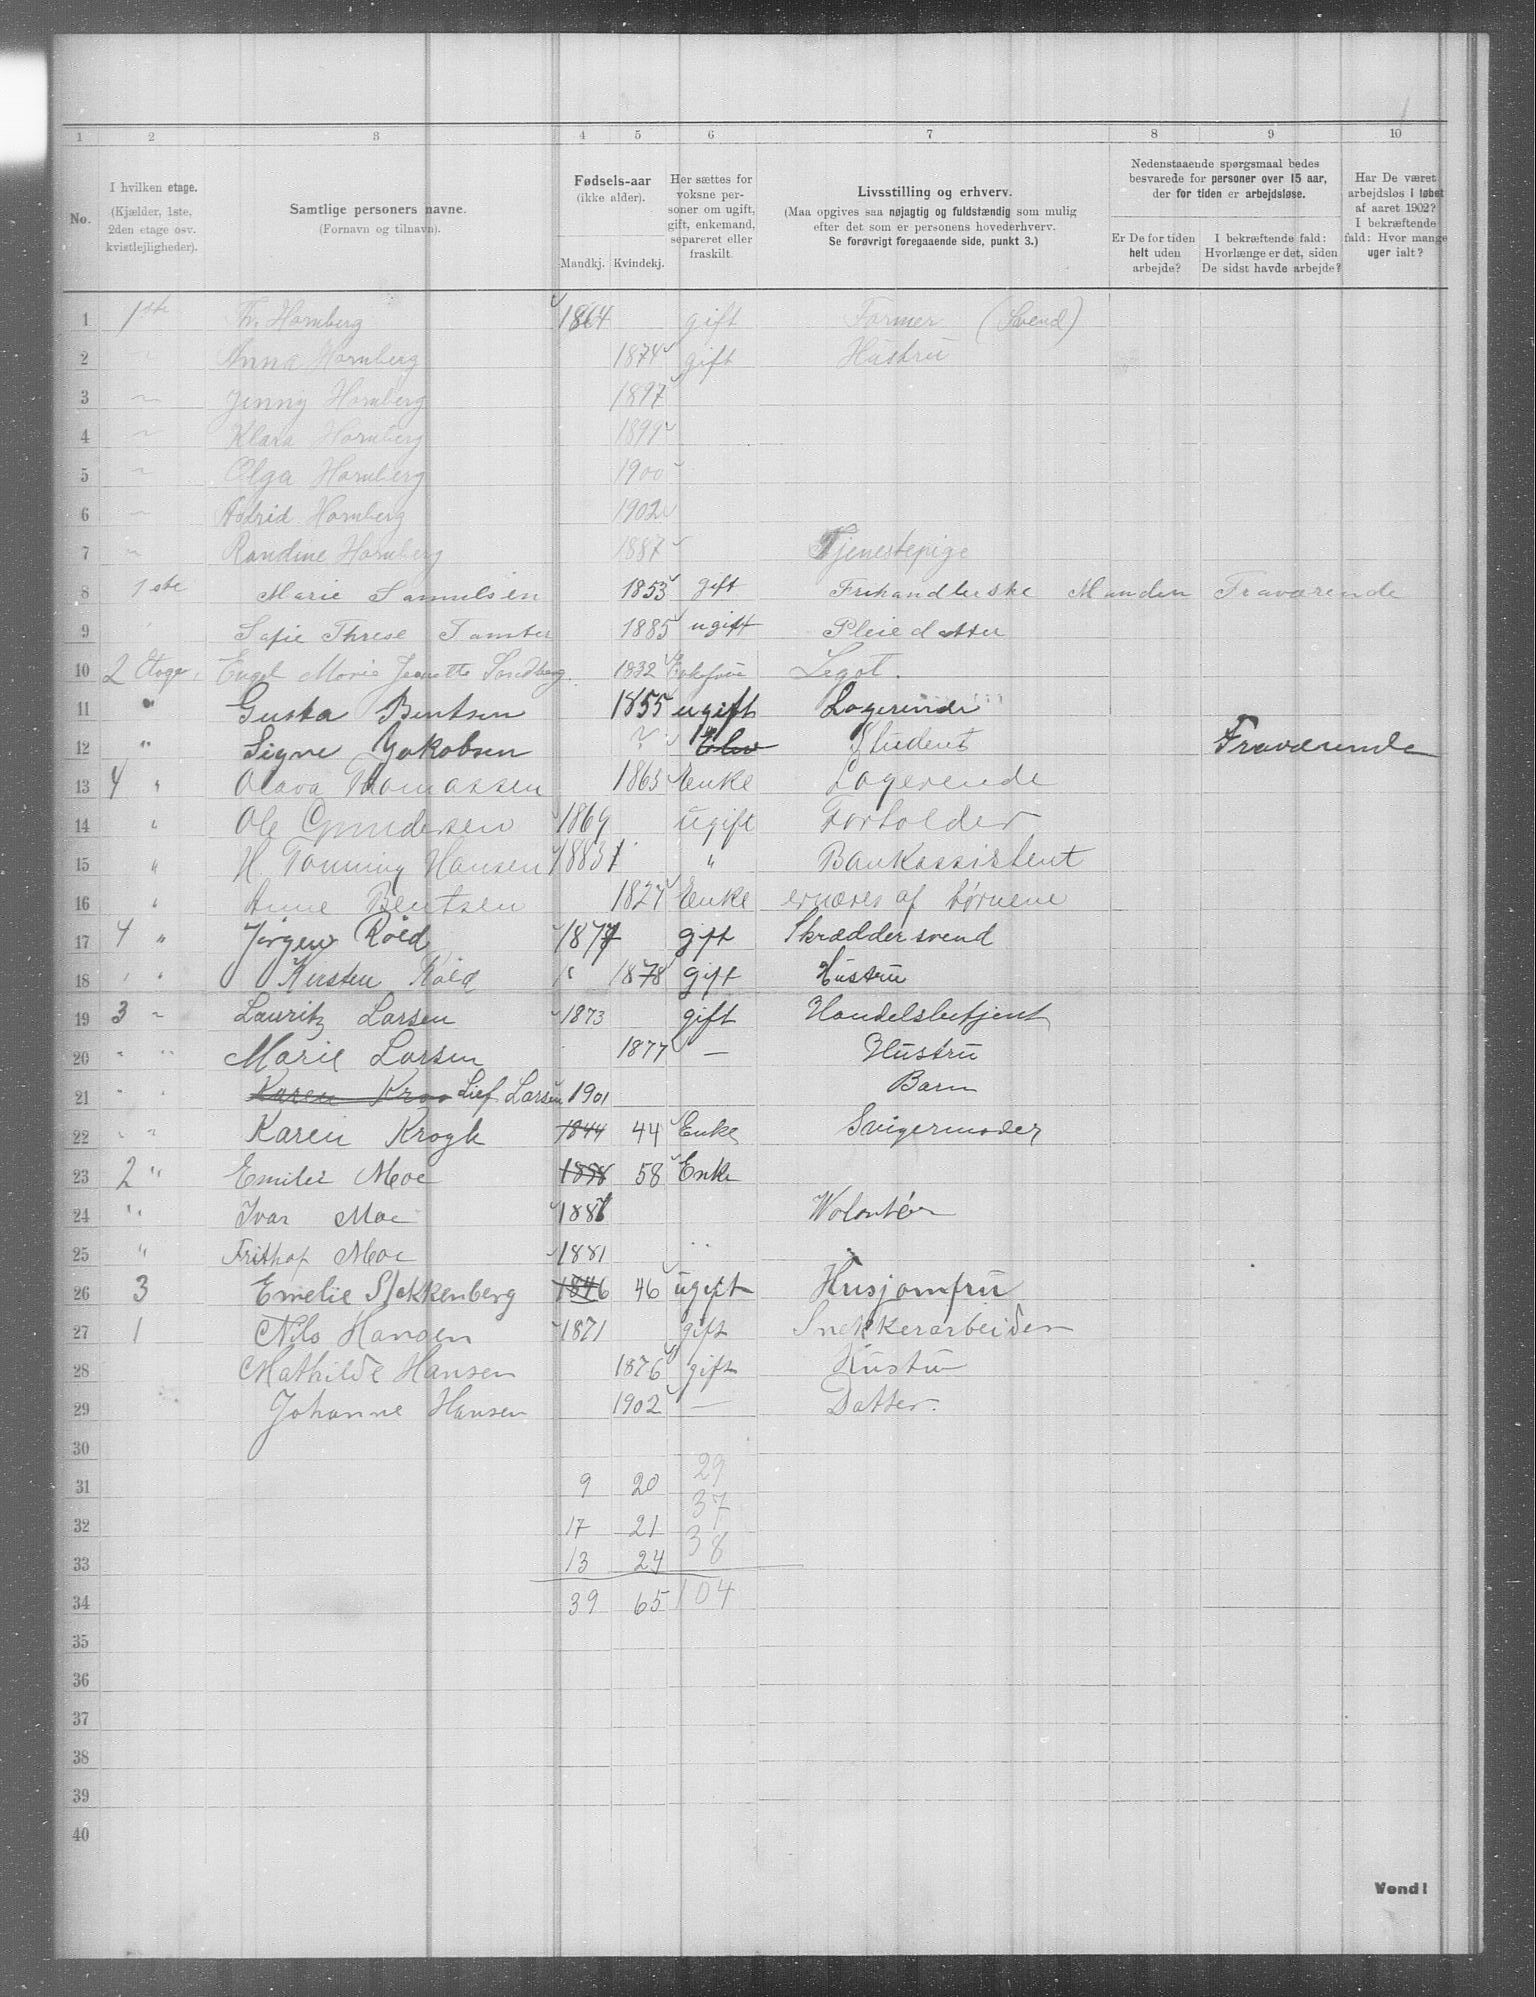 1 2 3 4 5 6 7 8 9 10
No.
I hvilken etage.
(Kjælder, 1ste,
2den etage osv.
kvistlejligheder).
Samtlige personers navne.
(Fornavn og tilnavn).
Fødsels-aar
(ikke alder).
Mandkj. Kvindekj.
Her sættes for
voksne per-
soner om ugift,
gift, enkemand,
separeret eller
fraskilt.
Livsstilling og erhverv.
(Maa opgives saa nøjagtig og fuldstændig som mulig
efter det som er personens hovederhverv.
Se forøvrigt foregaaende side, punkt 3.)
Nedenstaaende spørgsmaal bedes
besvarede for personer over 15 aar,
der for tiden er arbejdsløse.
Er De for tiden
helt uden
arbejde?
I bekræftende fald:
Hvorlænge er det, siden
De sidst havde arbejde?
Har De været
arbejdsløs i løbet
af aaret 1902?
I bekræftende
fald: Hvor mange
uger ialt?
1 1ste Th. Hornberg 1864 gift Former (Svend)
2 " Anna Hornberg 1874 gift Hustru
3 " Jenny Hornberg 1897
4 " Klara Hornberg 1899
5 " Olga Hornberg 1900
6 " Astrid Hornberg 1902
7 " Randine Hornberg 1887 Tjenestepige
8 1ste Marie Samulsen 1853 gift Fruhandlerske Manden Fraværende
9 Sofie Threse 1885 ugift Pleiedatter
10 2 Etage, Engel Marie Jeanette Sandberg 1832 Legat.
11 " Gusta Bentsen 1855 ugift Logerende
12 " Signe Jakobsen ? " Elev Student Fraværende
13 4 " Olava Thomassen 1863 Enke Logerende
14 " Ole Gundersen 1869 ugift Forholder
15 " H. Tonning Hansen 1883 " Bankassistent
16 " Anne Bentsen 1827 Enke ernæres af børnene
17 4 " Jørgen Røed 1877 gift Skræddersvend
18 " " Kirsten Røed " 1878 gift Hustru
19 3 " Lauritz Larsen 1873 gift Handelsbetjent
20 " " Marie Larsen 1877 — Hustru
21 " " Karen Kroo Lief Larsen 1901 Barn
22 " " Karen Krogh 1844 44 Enke Svigermoder
23 2 " Emilie Moe 1858 58 Enke
24 " Ivar Moe 1886 Wolontør
25 " Frithof Moe 1881 "
26 3 Emelie Stokkenberg 1846 46 ugift Husjomfru
27 1 Nils Hansen 1871 gift Snekkerarbeider
28 Mathilde Hansen 1876 gift Hustru
29 Johanne Hansen 1902 — Datter.
30
31 9 20 29
32 17 21 37
33 13 24 38
34 39 65 104
35
36
37
38
39
40
Vend!